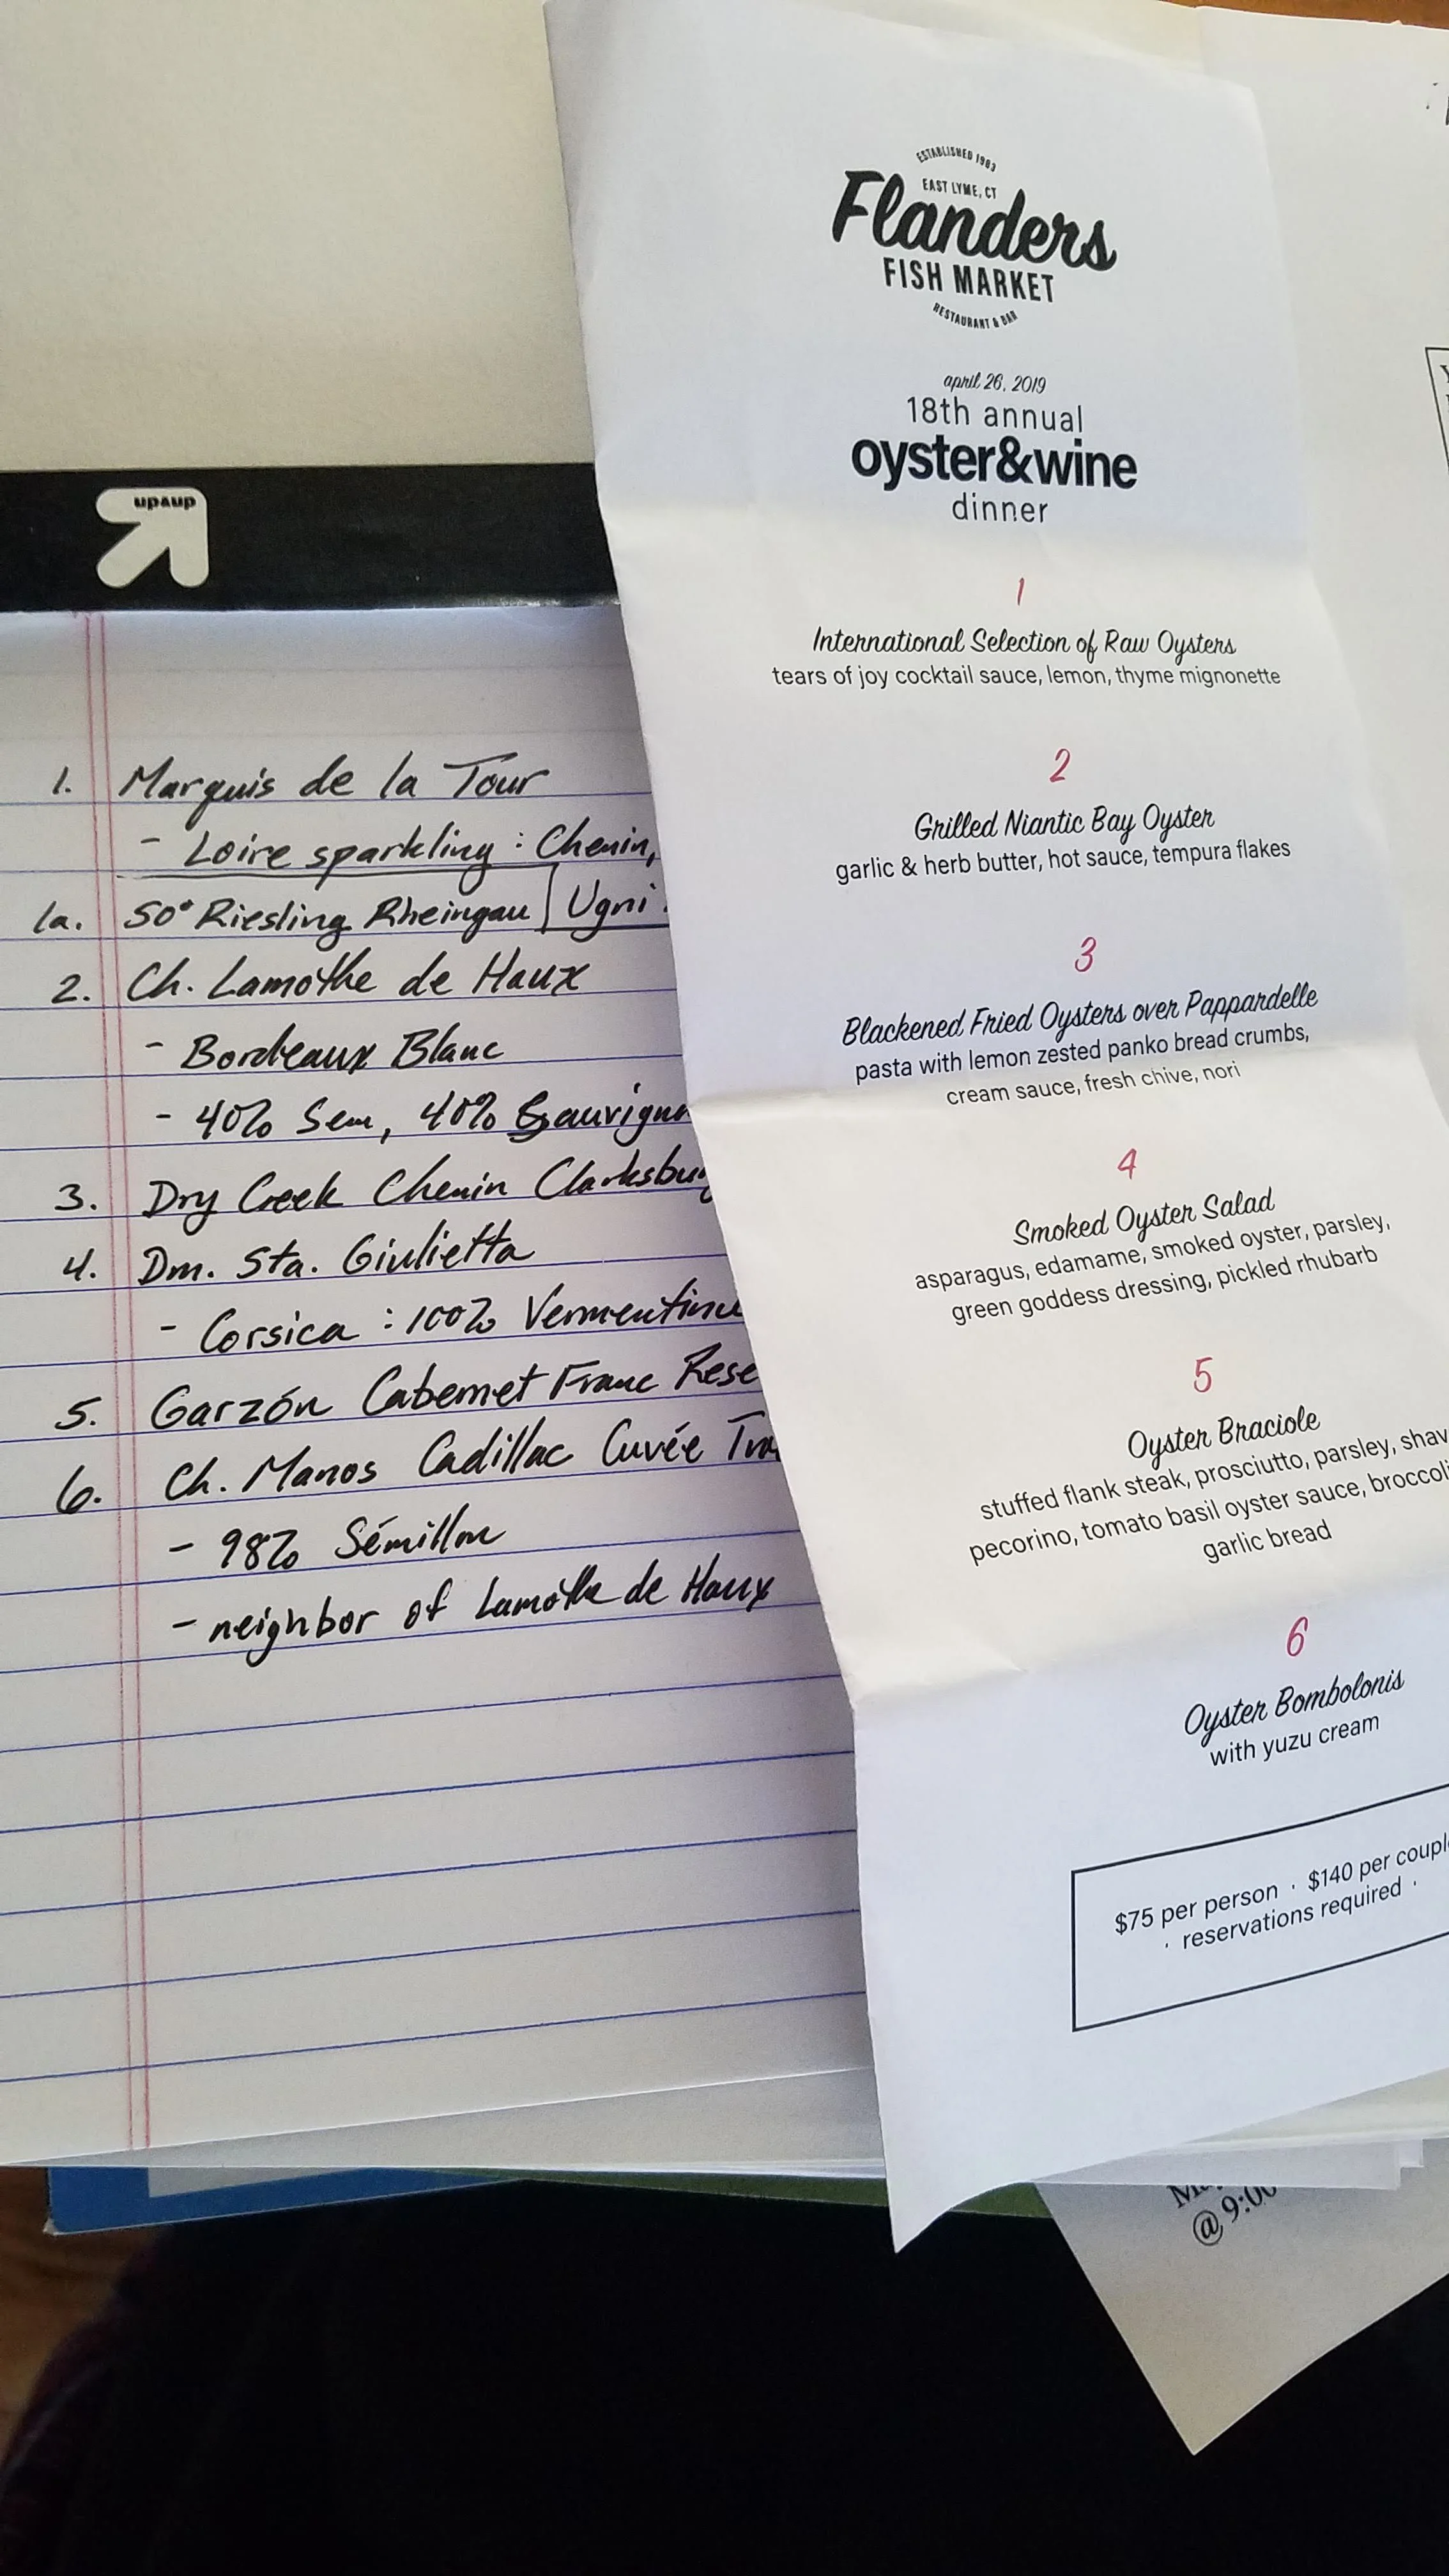 up&up
1. Marquis de la Tour
- Loire sparkling : Chenin,
1a. 50° Riesling Rheingau | Ugni
2. Ch. Lamothe de Haux
- Bordeaux Blanc
- 40% Sem, 40% Sauvignon
3. Dry Creek Chenin Clarksburg
4. Dm. Sta. Giulietta
- Corsica : 100% Vermentinu
5. Garzón Cabernet Franc Rese
6. Ch. Manos Cadillac Cuvée
- 98% Sémillon
- neighbor of Lamothe de Haux
ESTABLISHED 1983
EAST LYME, CT
Flanders
FISH MARKET
RESTAURANT & BAR
april 26, 2019
18th annual
oyster&wine
dinner
1
International Selection of Raw Oysters
tears of joy cocktail sauce, lemon, thyme mignonette
2
Grilled Niantic Bay Oyster
garlic & herb butter, hot sauce, tempura flakes
3
Blackened Fried Oysters over Pappardelle
pasta with lemon zested panko bread crumbs,
cream sauce, fresh chive, nori
4
Smoked Oyster Salad
asparagus, edamame, smoked oyster, parsley,
green goddess dressing, pickled rhubarb
5
Oyster Braciole
stuffed flank steak, prosciutto, parsley, shav
pecorino, tomato basil oyster sauce, broccoli
garlic bread
6
Oyster Bombolonis
with yuzu cream
$75 per person · $140 per couple
· reservations required ·
@ 9:00